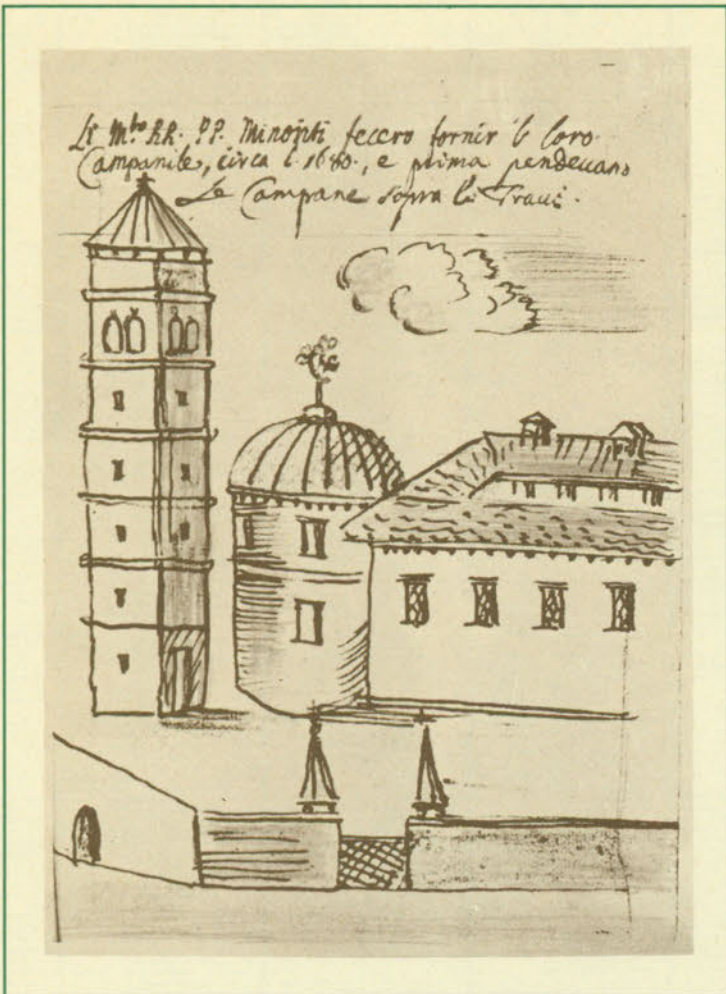 Li M.to RR. PP. Minoriti fecero fornir il loro
Campanile, circa l. 1680., e prima pendeuano
Le Campane sopra li Traui.